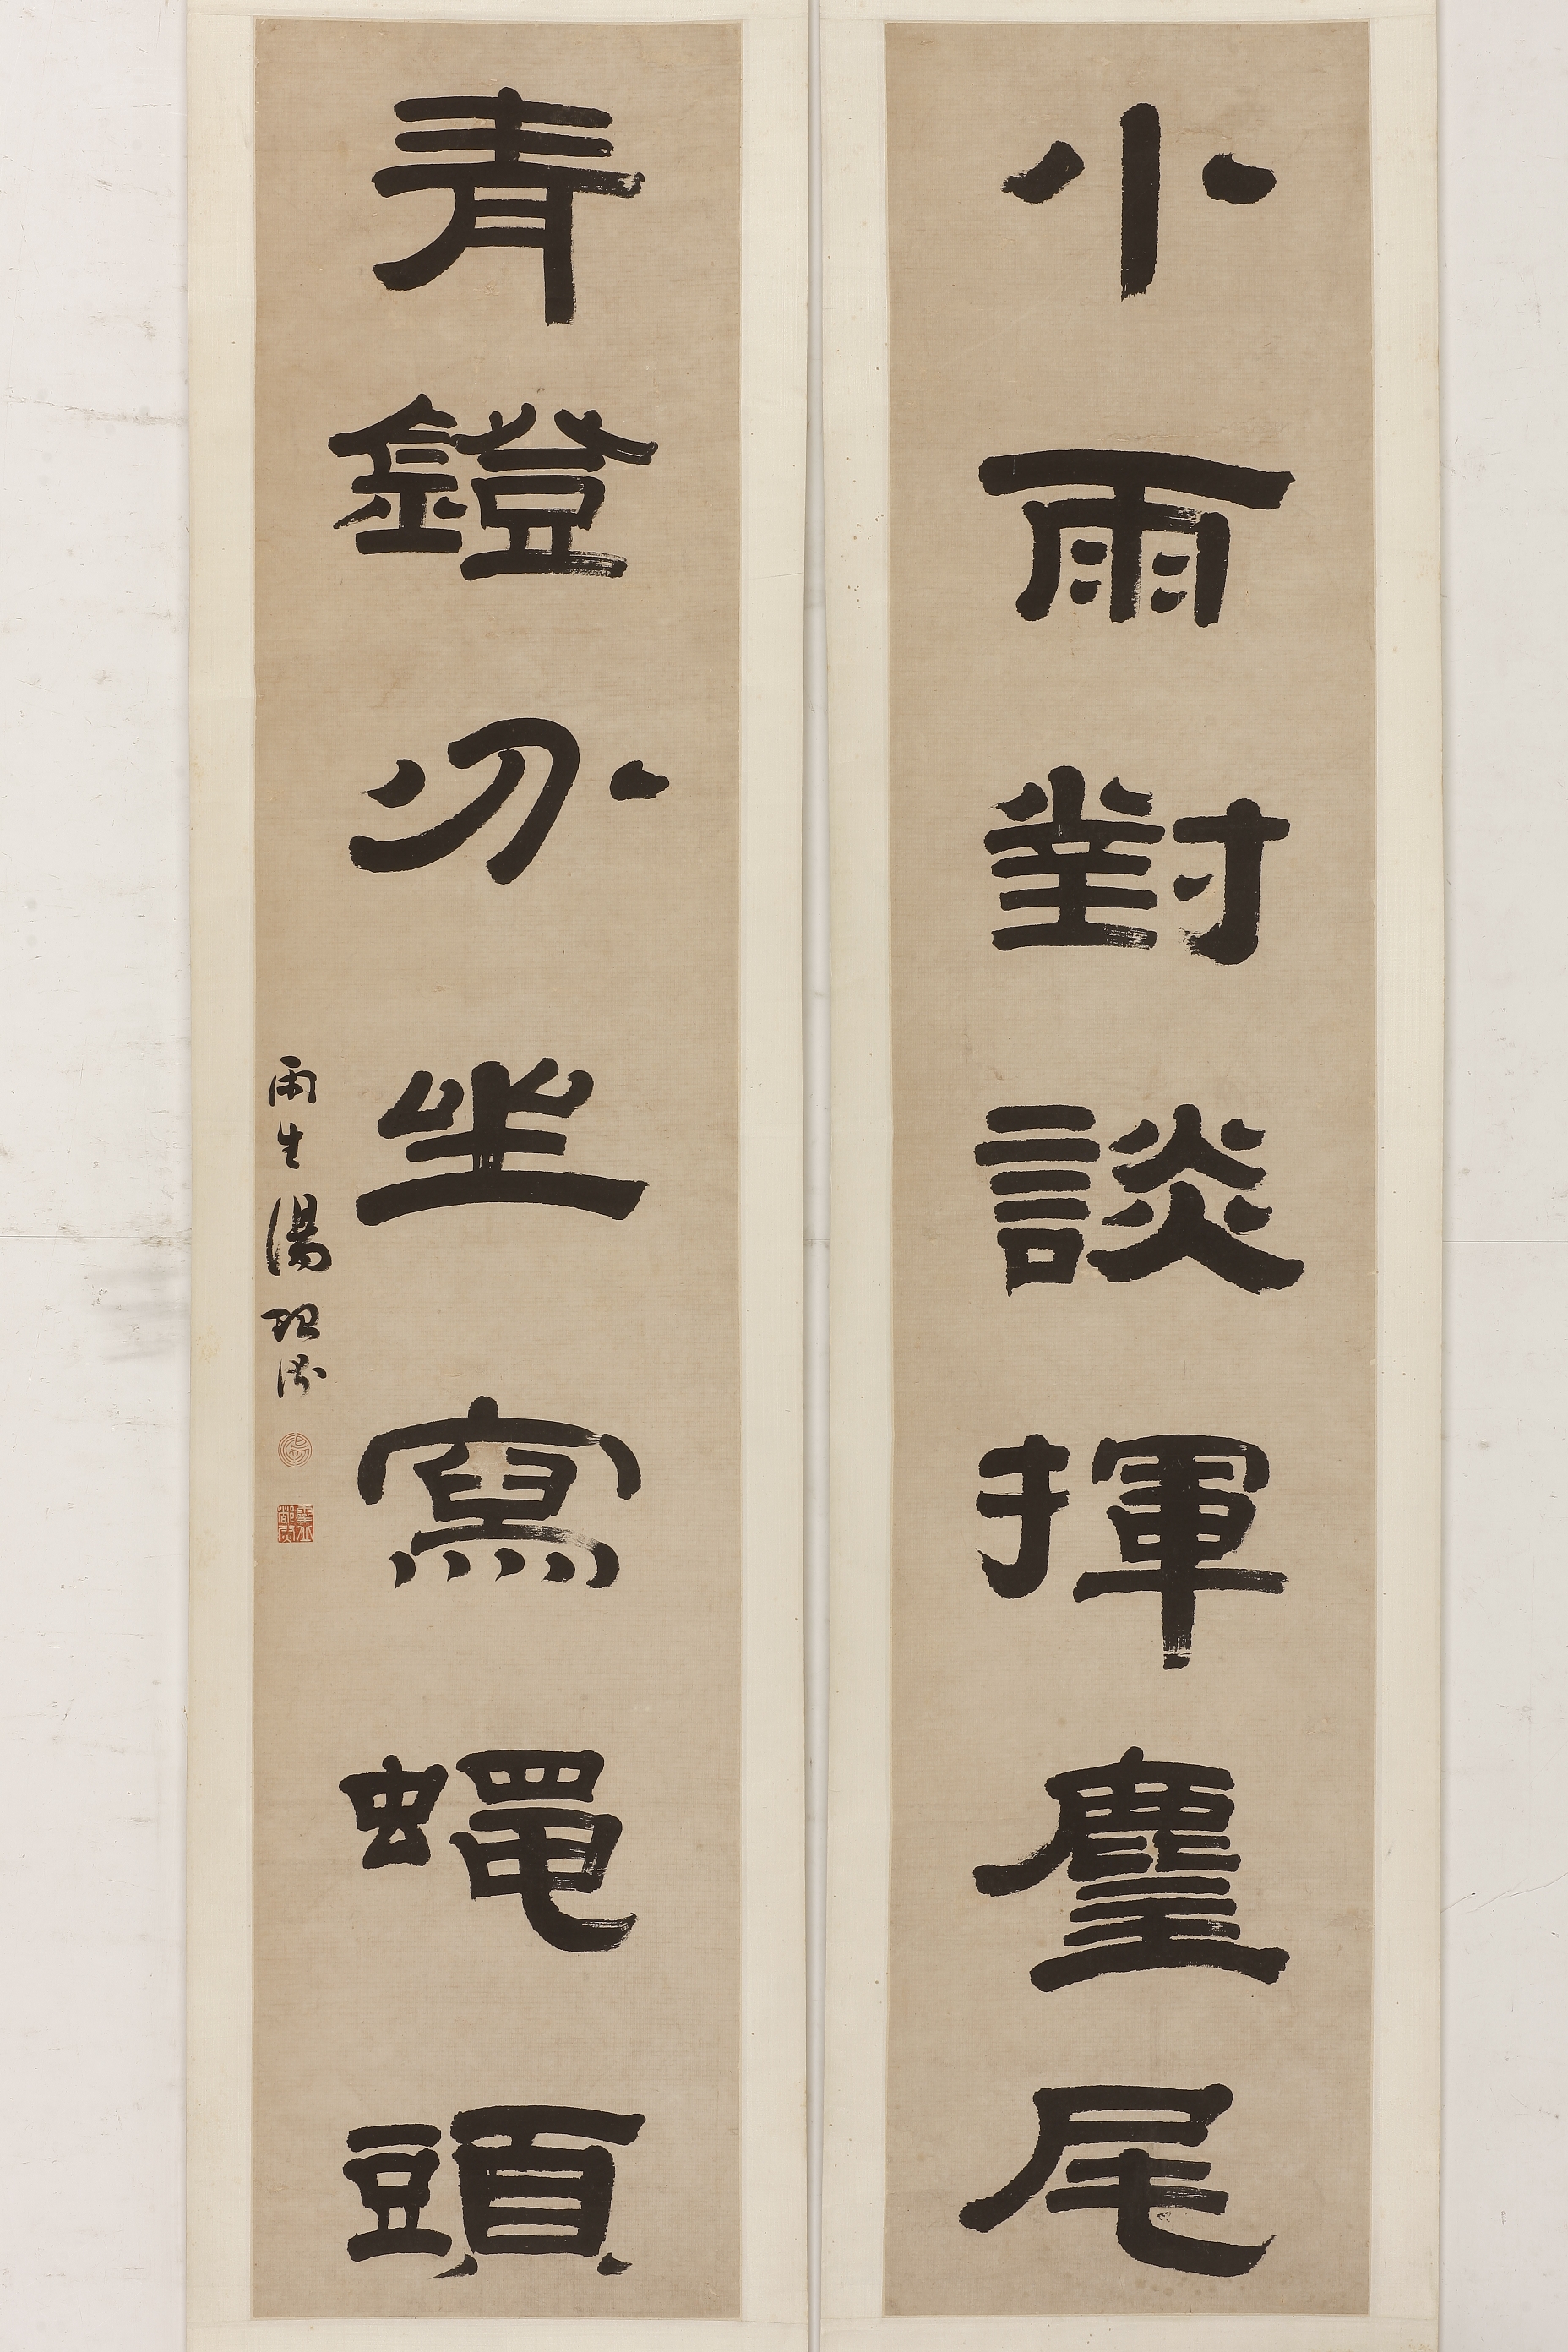 小雨對談揮麈尾
青鐙分坐寫蠅頭
雨生湯貽汾